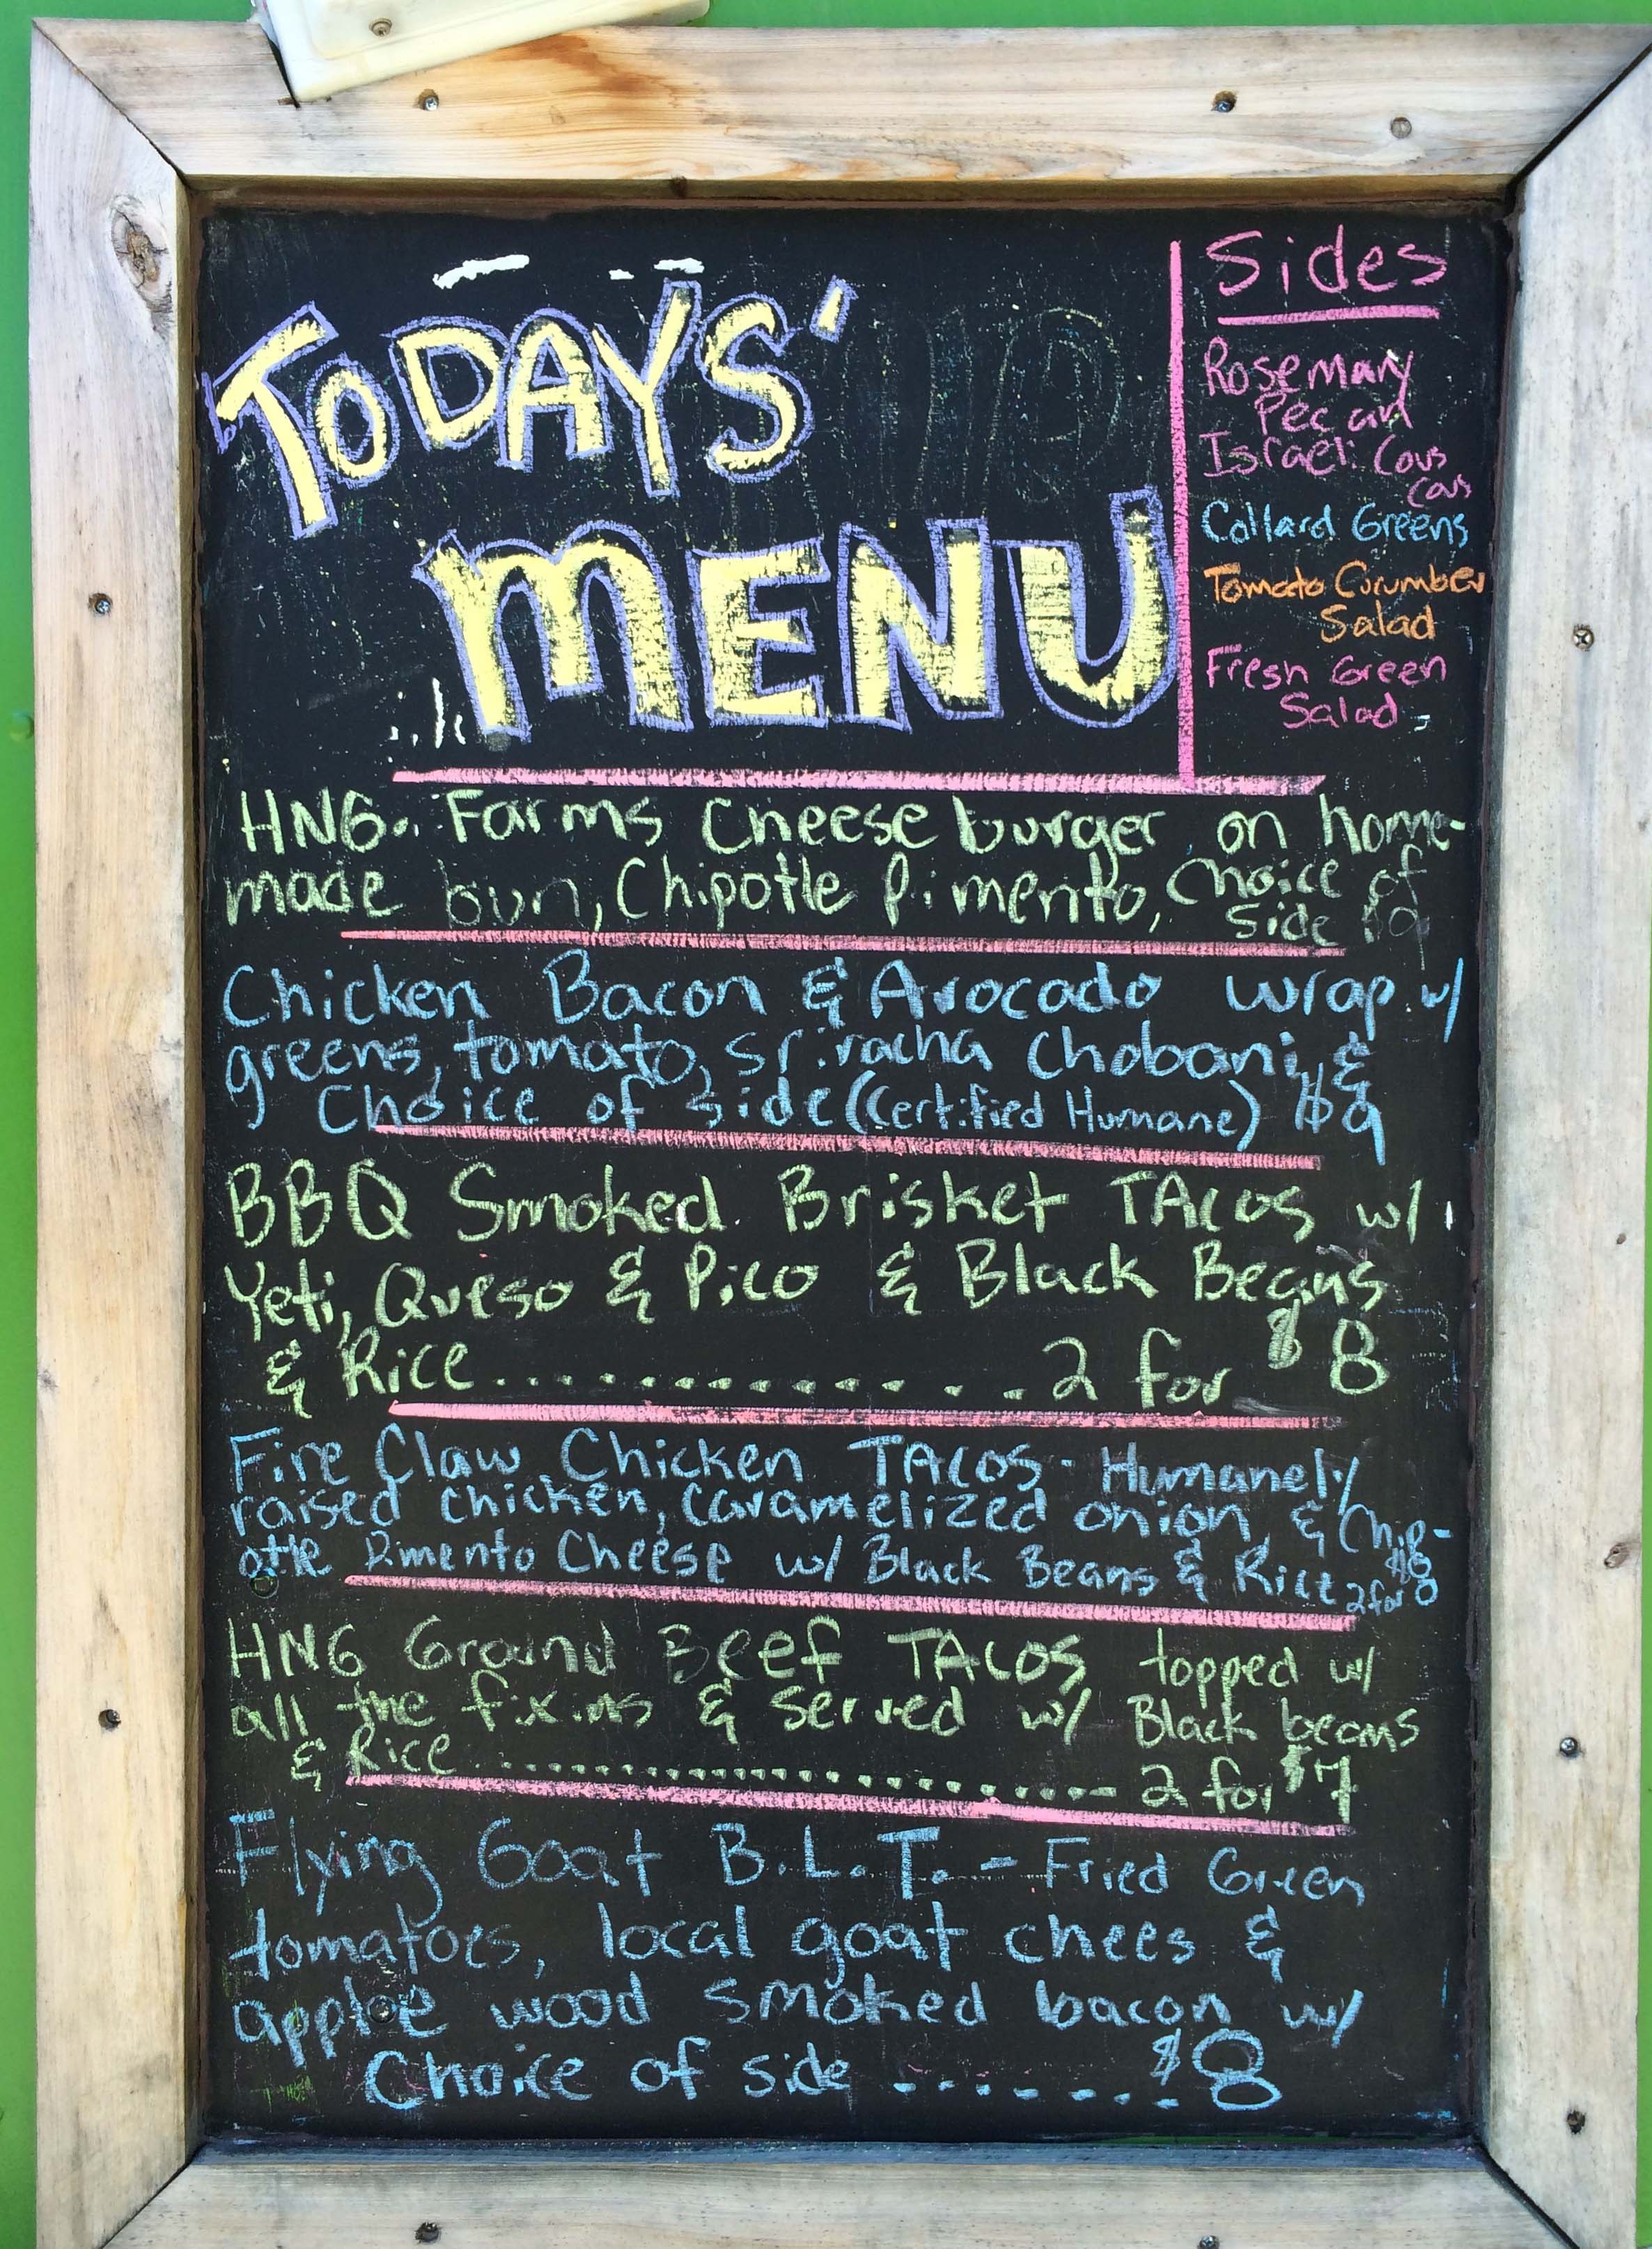 TODAYS'
MENU
Sides
Rosemary
Pecan
Israeli Cous
Cous
Collard Greens
Tomato Cucumber
Salad
Fresh Green
Salad
HNG. Farms Cheeseburger on home-
made bun, Chipotle Pimento, Choice of
Side $9
Chicken Bacon & Avocado wrap w/
greens, tomato, sriracha Chobani, &
Choice of side (Certified Humane) $9
BBQ Smoked Brisket TAcos w/
Yeti, Queso & Pico & Black Beans
& Rice.............2 for $8
Fire Claw Chicken TACOS - Humanely
raised chicken, caramelized onion, & Chip-
otle Pimento Cheese w/ Black Beans & Rice 2 for $8
HNG Ground Beef TACOS topped w/
all the fixins & served w/ Black beans
& Rice.......................... 2 for $7
Flying Goat B.L.T. - Fried Green
tomatoes, local goat chees &
apple wood smoked bacon w/
Choice of side ....... $8